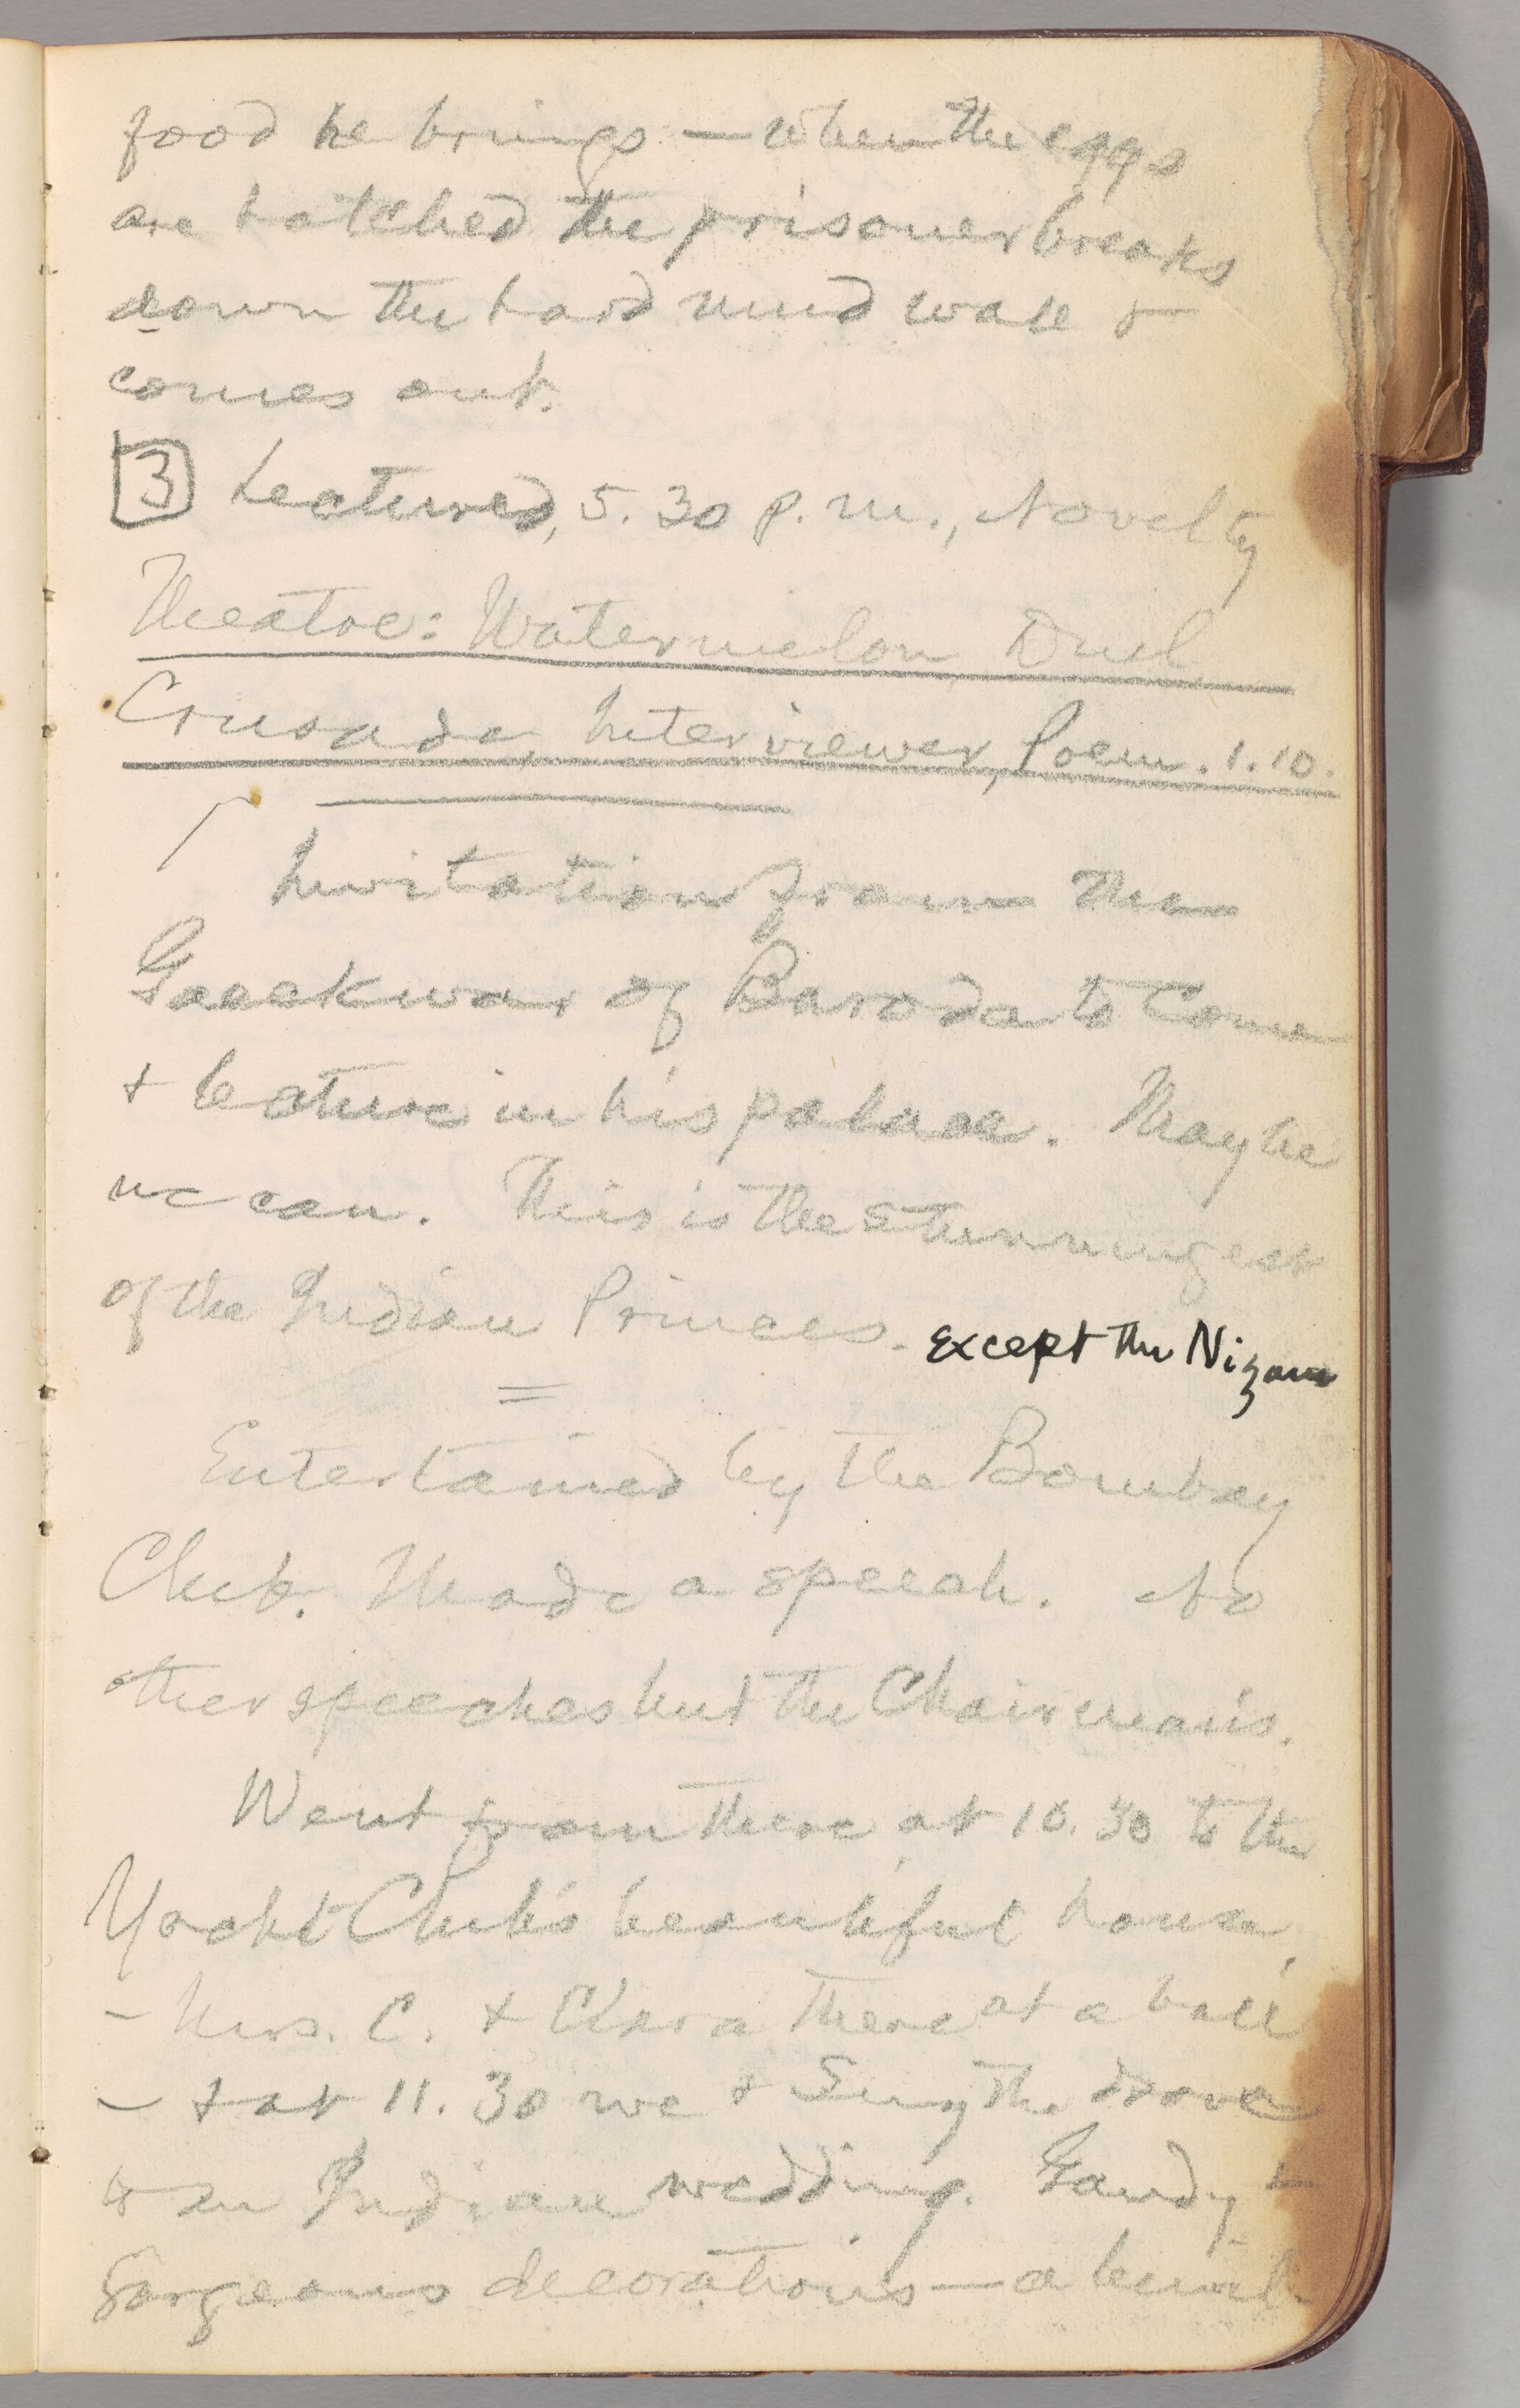 food he brings — when the eggs
are hatched the prisoner breaks
down the hard mud wall &
comes out.
3 Lectured, 5.30 p.m., Novelty
Theatre: Watermelon Duel
Crusade, Interviewer, Poem. 1.10.
Invitation from the
Gaeekwar of Baroda to come
& lecture in his palace. Maybe
we can. This is the stunningest
of the Indian Princes. Except the Nizam
=
Entertained by the Bombay
Club. Made a speech. No
other speeches but the Chairman's.
Went from there at 10.30 to the
Yacht Club's beautiful house,
— Mrs. C. & Clara there at a ball
— & at 11.30 we & Smythe drove
to an Indian wedding. Gaudy &
Gorgeous decorations — a